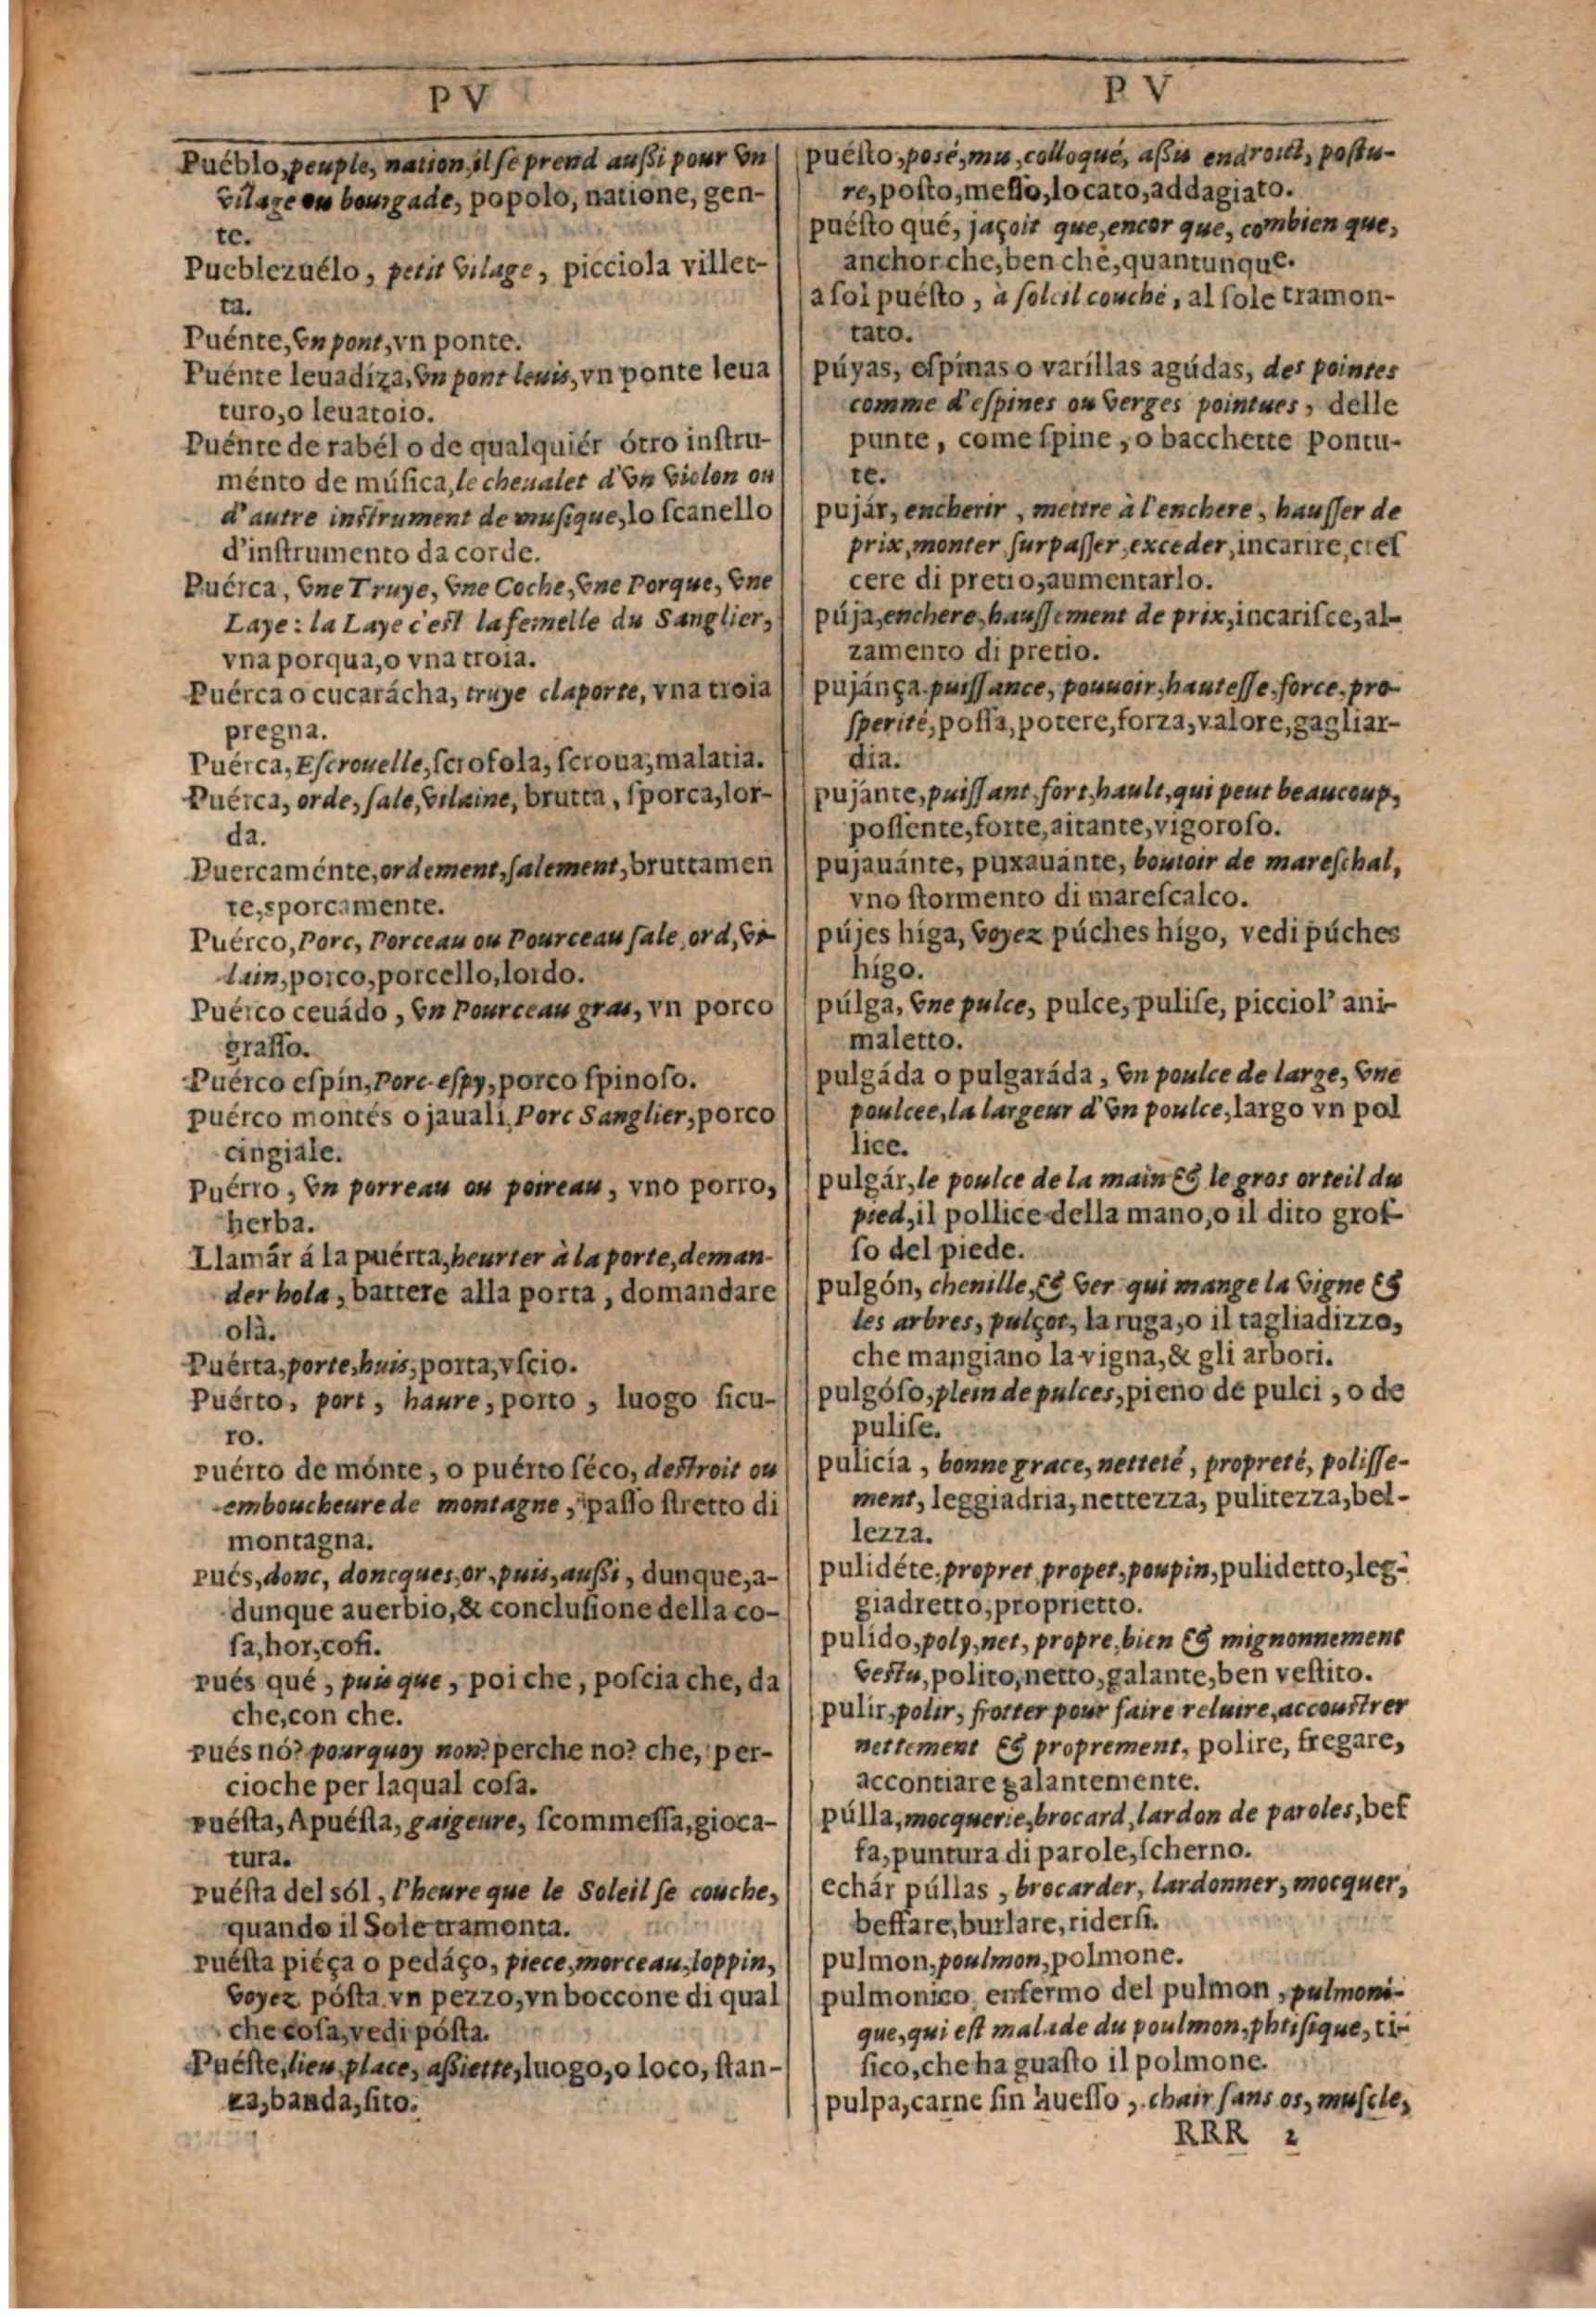 P V
Puéblo, peuple, nation, il ſe prend auſſi pour vn
vilage ou bourgade, popolo, natione, gen-
te.
Pueblezuélo, petit vilage, picciola villet-
ta.
Puénte, vn pont, vn ponte.
Puénte leuadíza, vn pont leuis, vn ponte leua
turo, o leuatoio.
Puénte de rabél o de qualquiér ótro inſtru-
ménto de múſica, le cheualet d'vn violon ou
d'autre inſtrument de muſique, lo ſcanello
d'inſtrumento da corde.
Puérca, vne Truye, vne Coche, vne Porque, vne
Laye: la Laye c'eſt la femelle du Sanglier,
vna porqua, o vna troia.
Puérca o cucarácha, truye claporte, vna troia
pregna.
Puérca, Eſcrouelle, ſcrofola, ſcroua, malatia.
Puérca, orde, ſale, vilaine, brutta, ſporca, lor-
da.
Puercaménte, ordement, ſalement, bruttamen
te, sporcamente.
Puérco, Porc, Porceau ou Pourceau ſale, ord, vi-
lain, porco, porcello, lordo.
Puérco ceuádo, vn Pourceau gras, vn porco
graſſo.
Puérco eſpín, Porc-eſpy, porco ſpinoſo.
puérco montés o jaualí, Porc Sanglier, porco
cingiale.
puérro, vn porreau ou poireau, vno porro,
herba.
Llamár á la puérta, heurter à la porte, deman-
der hola, battere alla porta, domandare
olà.
Puérta, porte, huis, porta, vſcio.
Puérto, port, haure, porto, luogo ſicu-
ro.
puérto de mónte, o puérto ſéco, deſtroit ou
emboucheure de montagne, paſſo ſtretto di
montagna.
pués, donc, doncques, or, puis, auſſi, dunque, a-
dunque auerbio, & concluſione della co-
ſa, hor, coſi.
pués qué, puis que, poi che, poſcia che, da
che, con che.
pués nó? pourquoy non? perche no? che, per-
cioche per laqual coſa.
puéſta, Apuéſta, gaigeure, ſcommeſſa, gioca-
tura.
puéſta del sól, l'heure que le Soleil ſe couche,
quando il Sole tramonta.
puéſta piéça o pedáço, piece, morceau, loppin,
voyez póſta. vn pezzo, vn boccone di qual
che coſa, vedi póſta.
Puéſte, lieu, place, aſſiette, luogo, o loco, ſtan-
za, banda, ſito.
P V
puéſto, posé, mu, colloqué, aſſis endroict, poſtu-
re, poſto, meſſo, locato, addagiato.
puéſto qué, jaçoit que, encor que, combien que,
anchor che, ben che, quantunque.
a ſol puéſto, à ſoleil couché, al ſole tramon-
tato.
púyas, eſpínas o varíllas agúdas, des pointes
comme d'eſpines ou verges pointues, delle
punte, come ſpine, o bacchette pontu-
te.
pujár, encherir, mettre à l'enchere, hauſſer de
prix, monter ſurpaſſer, exceder, incarire, creſ
cere di pretio, aumentarlo.
púja, enchere, hauſſement de prix, incariſce, al-
zamento di pretio.
pujánça. puiſſance, pouuoir, hauteſſe, force, pro-
ſperité, poſſa, potere, forza, valore, gagliar-
dia.
pujánte, puiſſant, fort, hault, qui peut beaucoup,
poſſente, forte, aitante, vigoroſo.
pujauánte, puxauánte, boutoir de mareſchal,
vno ſtormento di mareſcalco.
pújes híga, voyez púches hígo, vedi púches
hígo.
púlga, vne pulce, pulce, puliſe, picciol' ani-
maletto.
pulgáda o pulgaráda, vn poulce de large, vne
poulcee, la largeur d'vn poulce, largo vn pol
lice.
pulgár, le poulce de la main & le gros orteil du
pied, il pollice della mano, o il dito groſ-
ſo del piede.
pulgón, chenille, & ver qui mange la vigne &
les arbres, pulçot, la ruga, o il tagliadizzo,
che mangiano la vigna, & gli arbori.
pulgóſo, plein de pulces, pieno de pulci, o de
puliſe.
pulicía, bonne grace, netteté, propreté, poliſſe-
ment, leggiadria, nettezza, pulitezza, bel-
lezza.
pulidéte, propret, propet, poupin, pulidetto, leg-
giadretto, proprietto.
pulído, poly, net, propre, bien & mignonnement
veſtu, polito, netto, galante, ben veſtito.
pulír, polir, frotter pour faire reluire, accouſtrer
nettement & proprement, polire, fregare,
accontiare galantemente.
púlla, mocquerie, brocard, lardon de paroles, bef
fa, puntura di parole, ſcherno.
echár púllas, brocarder, lardonner, mocquer,
beffare, burlare, riderſi.
pulmon, poulmon, polmone.
pulmonico, enfermo del pulmon, pulmoni-
que, qui eſt malade du poulmon, phtiſique, ti-
ſico, che ha guaſto il polmone.
pulpa, carne ſin hueſſo, chair ſans os, muſcle,
RRR 2